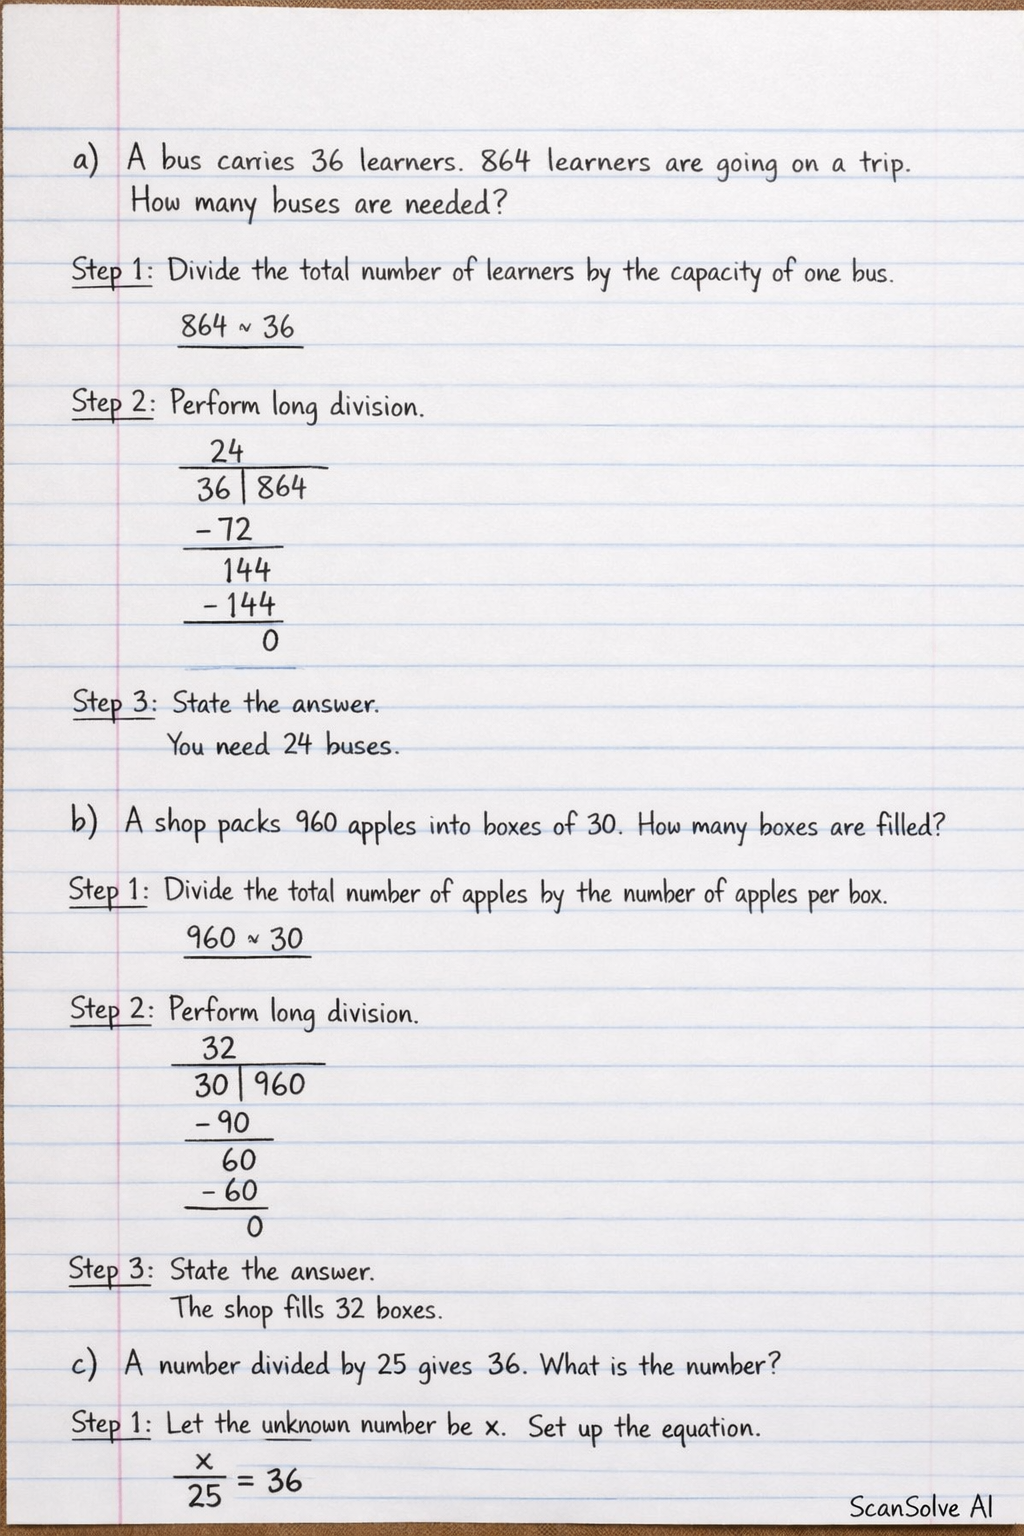 a) A bus carries 36 learners. 864 learners are going on a trip.
How many buses are needed?
Step 1: Divide the total number of learners by the capacity of one bus.
864 ~ 36
Step 2: Perform long division.
24
36 | 864
- 72
144
- 144
0
Step 3: State the answer.
You need 24 buses.
b) A shop packs 960 apples into boxes of 30. How many boxes are filled?
Step 1: Divide the total number of apples by the number of apples per box.
960 ~ 30
Step 2: Perform long division.
32
30 | 960
- 90
60
- 60
0
Step 3: State the answer.
The shop fills 32 boxes.
c) A number divided by 25 gives 36. What is the number?
Step 1: Let the unknown number be x. Set up the equation.
x
25 = 36
ScanSolve AI